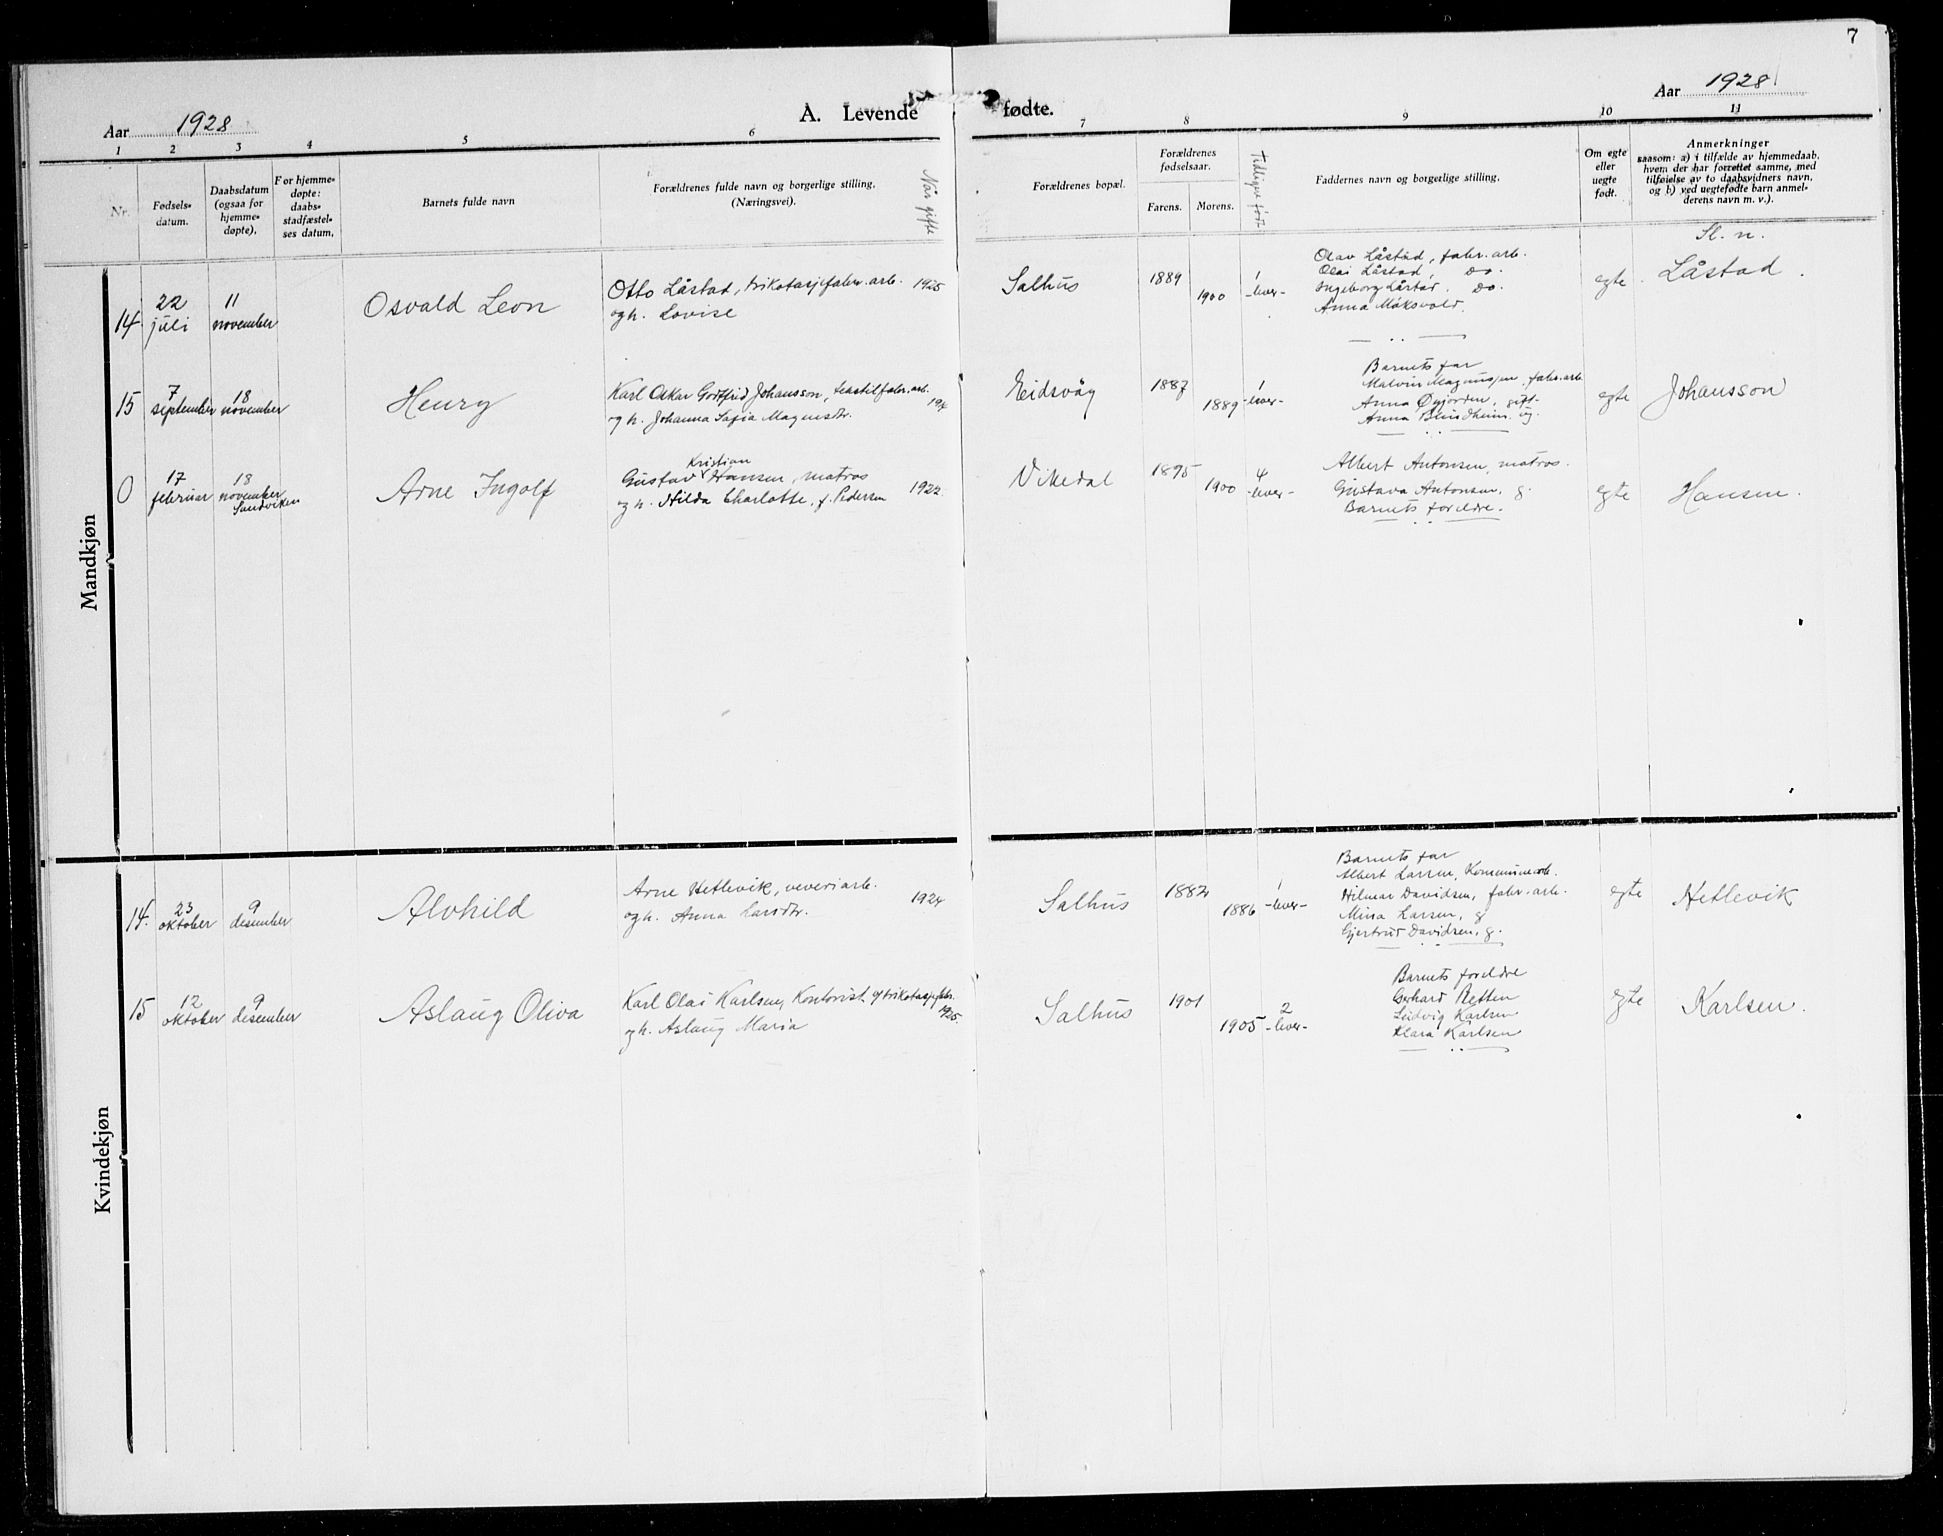 7
Aar 1928
A. Levende fødte.
Aar 1928
1 2 3 4 5 6 7 8 9 10 11
Nr.
Fødsels-
datum.
Daabsdatum
(ogsaa for
hjemme-
døpte).
For hjemme-
døpte:
daabs-
stadfæstel-
ses datum.
Barnets fulde navn
Forældrenes fulde navn og borgerlige stilling.
(Næringsvei).
Når gifte
Forældrenes bopæl.
Forældrenes
fødselsaar.
Farens. Morens.
Tidligere født
Faddernes navn og borgerlige stilling.
Om egte
eller
uegte
født.
Anmerkninger
saasom: a) i tilfælde av hjemmedaab.
hvem der har forrettet samme, med
tilføielse av to daabsvidners navn,
og b) ved uegtefødte barn anmel-
derens navn m. v.).
Sl. n.
Mandkjøn
14
22
juli
11
november
Osvald Leon
Otto Låstad, trikotasjefabr. arb. 1925
og h. Lovise
Salhus
1889
1900
1
-lever-
Olav Låstad, fabr. arb.
Olai Låstad, do.
Ingeborg Låstad. do.
Anna Måksvold.
egte
Låstad.
15
7
september
18
november
Henry
Karl Oskar Godtfrid Johansson, tekstilfabr. arb.
og h. Johanna Sofia Magnusdr.
Eidsvåg
1887
1889
1
-lever-
Barnets far
Malvin Magnussen, fabr. arb.
Anna Øyjorden, gift
Anna Blindheim. ug.
egte
Johansson
0
17
februar
18
november
Sandviken
Arne Ingolf
Kristian
Gustav Hansen, matros
og h. Hilda Charlotte, f. Pedersen 1922
Vikedal
1895
1900
4
-lever-
Albert Antonsen, matros.
Gustava Antonsen, g.
Barnets foreldre.
egte
Hansen.
Kvindekjøn
14.
23
oktober
9
desember
Alvhild
Arne Hetlevik, veveriarb.
og h. Anna Larsdtr. 1924
Salhus
1882
1886
1
-lever-
Barnets far
Albert Larsen, Kommunearb.
Hilmar Davidsen, fabr. arb.
Mina Larsen, g
Gjertrud Davidsen, g.
egte
Hetlevik
15
12
oktober
9
desember
Aslaug Oliva
Karl Olai Karlsen, Kontorist v/trikotasjefabr.
og h. Aslaug Maria 1925.
Salhus
1901
1905
2
-lever-
Barnets foreldre
Gerhard Retten
Ludvig Karlsen
Klara Karlsen
egte
Karlsen.